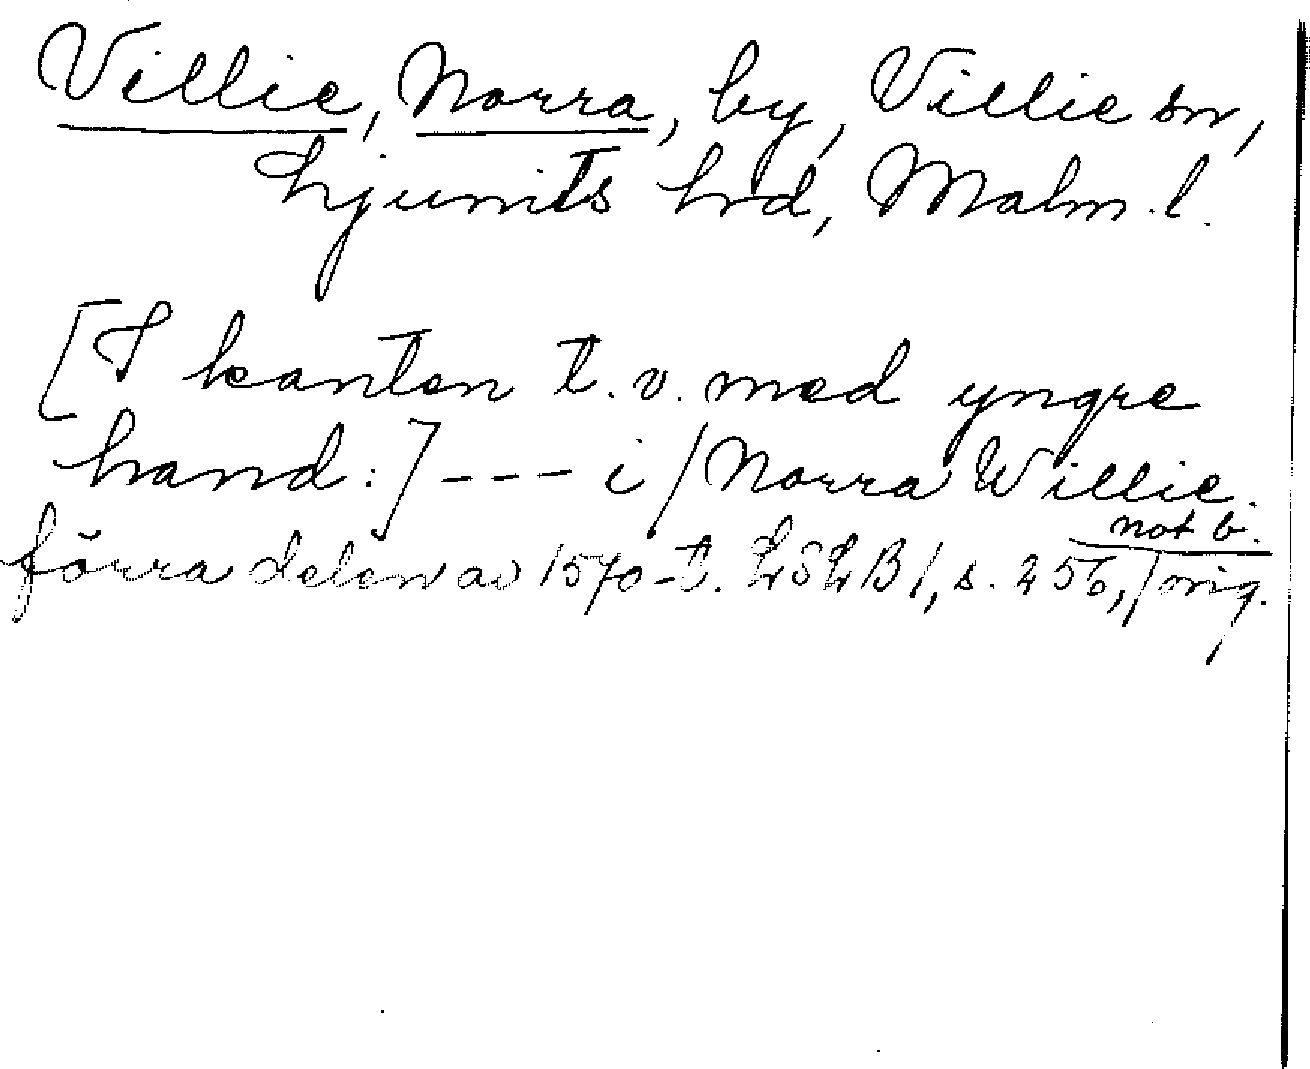 Villie, Norra, by, Villie sn,
Ljunits hrd, Malm. l.
[I kanten t. v. med yngre
hand:] --- i / Norra Willie.
förra delen av 1570-t. LSLB 1, s. 256, not b. / orig.